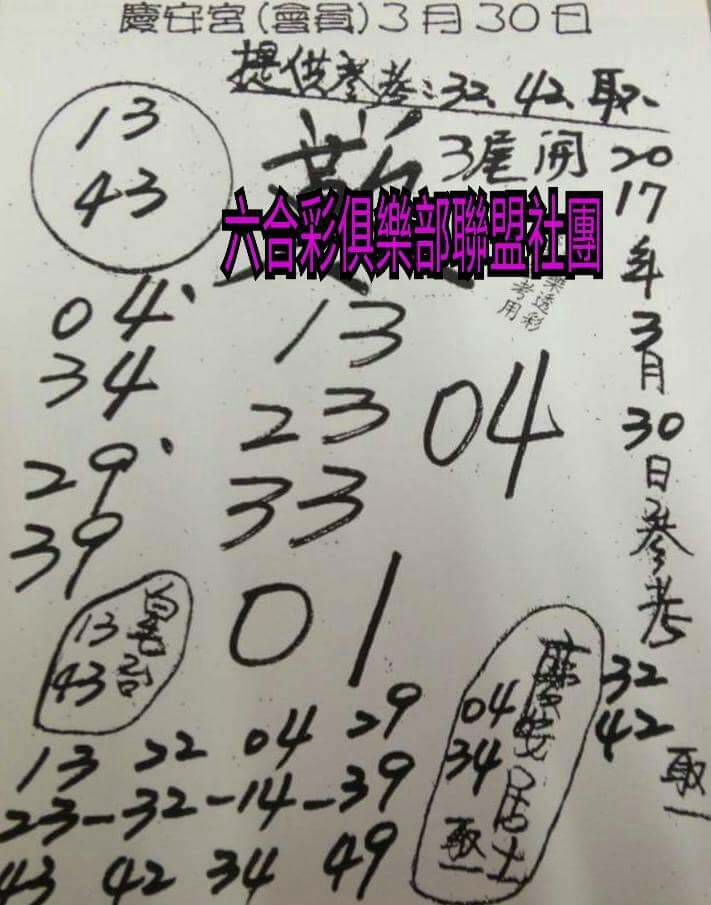 慶安宮(會員)3月30日
提供參考:32、42、取、
13
43
3尾開
2017年3月30日參考
六合彩俱樂部聯盟社團
樂透彩
考用
04、
34
13
23
33
04
29、
39
01
13
43
32
42
取一
04
34
居士
取一
13 22 04 29
23-32-14-39
43 42 34 49